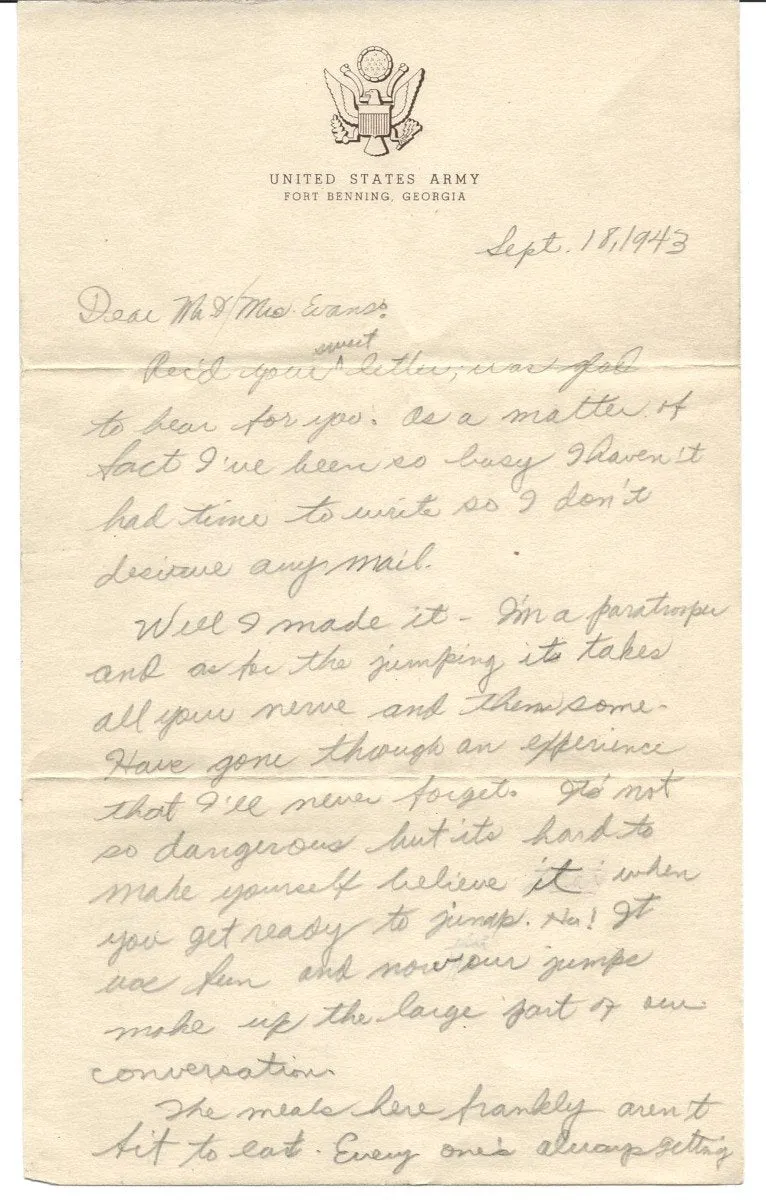 UNITED STATES ARMY
FORT BENNING, GEORGIA
Sept. 18, 1943
Dear Mr & Mrs Evans:
sweet
Rec'd your ^ letter, was glad
to hear for you. As a matter of
fact I've been so busy I haven't
had time to write so I don't
desirve any mail.
Well I made it - I'm a paratrooper
and as for the jumping its takes
all your nerve and then some.
Have gone through an experience
that I'll never forget. Its not
so dangerous but its hard to
make yourself believe it when
you get ready to jump. Ha! It
was fun and now our jumps
make up the large part of our
conversation.
The meals here frankly aren't
fit to eat. Every one's always getting